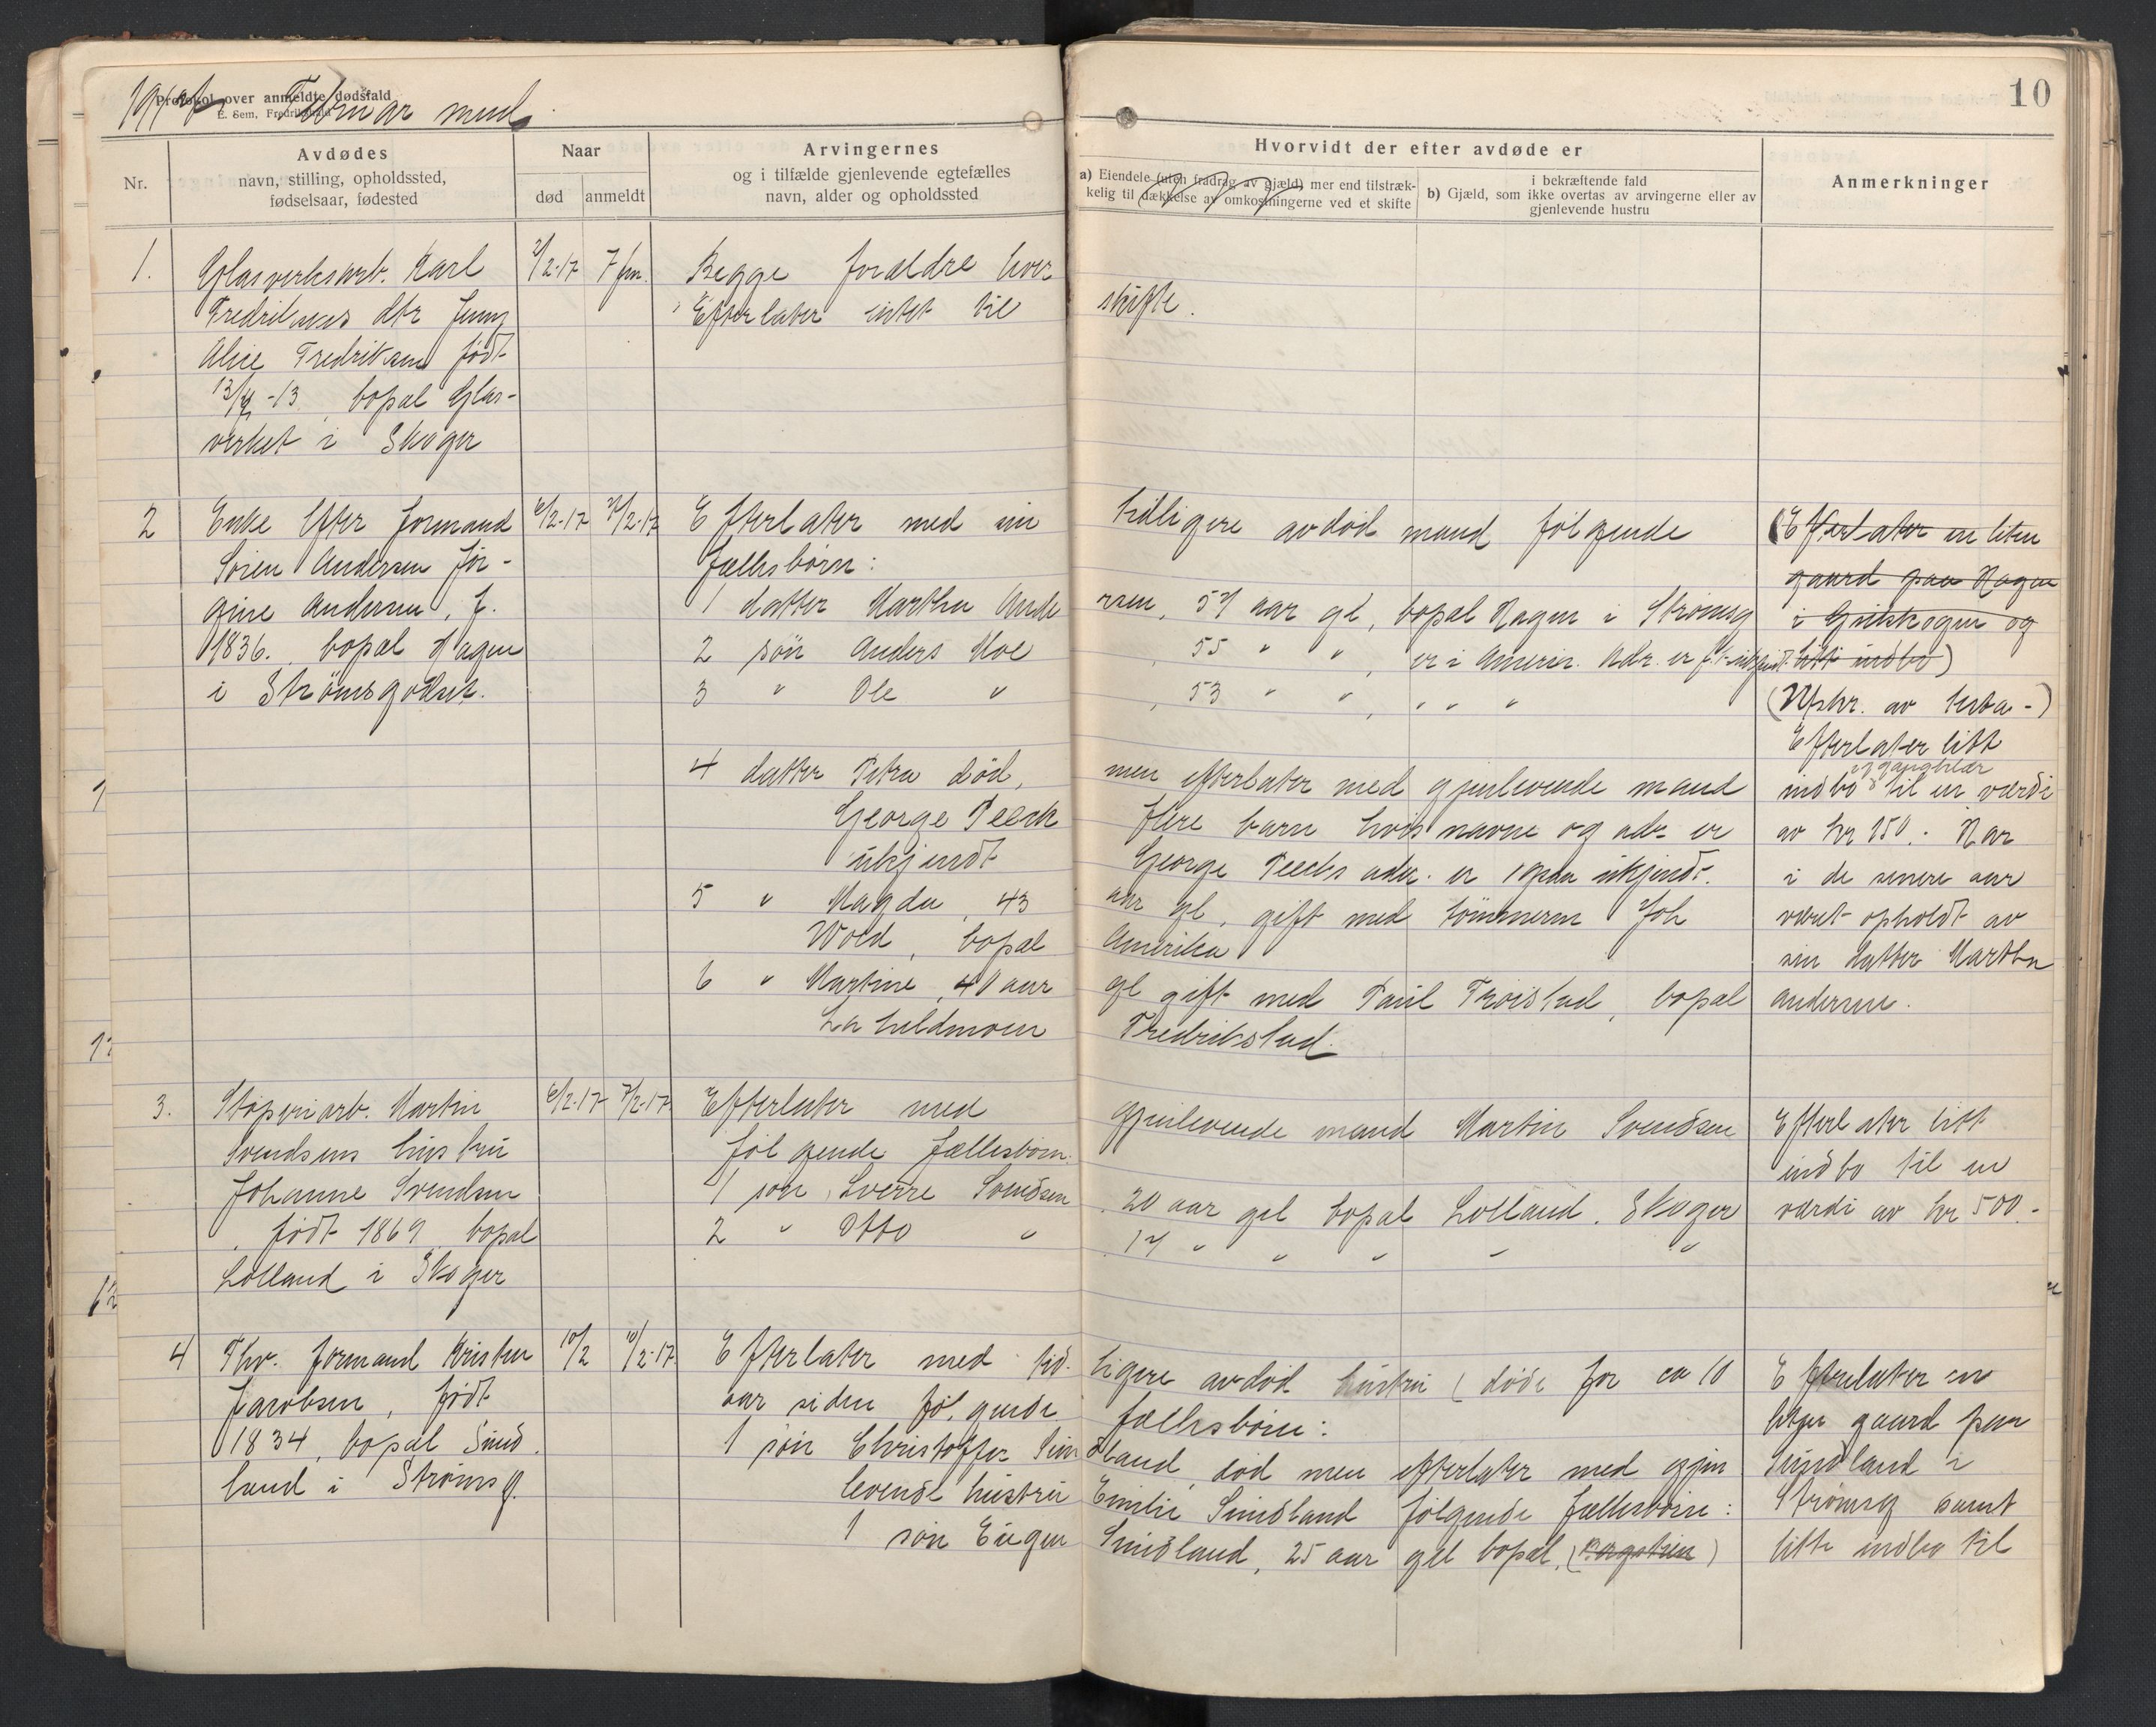 Protokol over anmeldte dødsfald
E. Sem, Fredrikshald
Februar mnd.
10
Nr.
Avdødes
navn, stilling, opholdssted,
fødselsaar, fødested
Naar
død
anmeldt
Arvingernes
og i tilfælde gjenlevende egtefælles
navn, alder og opholdssted
Hvorvidt der efter avdøde er
a) Eiendele (uten fradrag av gjæld) mer end tilstræk-
kelig til dækkelse av omkostningerne ved et skifte
i bekræftende fald
b) Gjæld, som ikke overtas av arvingerne eller av
gjenlevende hustru
Anmerkninger
1.
Glasverksarb. Karl
Fredriksens dtr Jenny
Alice Fredriksen født
-13, bopæl Glas-
verket i Skoger
2/2-17
7 fm.
Begge forældre lever
Efterlater intet til skifte.
2
Enke efter formand
Sören Andersen Jör-
gine Andersen, f.
1836. bopæl Hagen
i Strömsgodset.
6/2-17
7/2-17
Efterlater med sin tidligere avdöd mand fölgende
fællesbörn:
1 datter Martha Andersen, 57 aar gl, bopæl Hagen i Strömsg
2 sön Anders Moe, 55 " ", er i Amerik. Adr. er f.t. ukjendt
3 " Ole ", 53 " ", " " "
4 datter Petra död, men efterlater med gjenlevende mand
George Peech flere barn hvis navne og adr. er
ukjendt George Peechs adr. er ogsaa ukjendt.
5 " Magda, 43 aar gl, gift med tömmerm Joh
Wold, bopæl Amerika
6 " Martine, 40 aar gl gift med Paul Troistad, bopæl
Lahellmoen Fredrikstad.
(Efterlater en liten
gaard paa Hagen
i Gilskogen og
litt indbo)
(Utskr. av testa-)
Efterlater litt
og gangklær
indbo til en værdi
av kr 150.- Har
i de senere aar
været opholdt av
sin datter Martha
Andersen.
3.
Stöperiarb. Martin
Svendsens hustru
Johanne Svendsen
, födt 1869 bopæl
Lolland i Skoger
6/2-17
7/2-17
Efterlater med gjenlevende mand Martin Svendsen
fölgende fællesbörn:
1 sön Sverre Svendsen, 20 aar gl bopæl Lolland. Skoger
2 " Otto ", 17 " " " " "
Efterlater litt
indbo til en
værdi av kr 500.-
4
Fhv. formand Kristen
Jacobsen, födt
1834, bopæl Sund
land i Strömsg.
10/2
10/2-17
Efterlater med tidligere avdöd hustru (döde for ca 10
aar siden fölgende fællesbörn:
1 sön Christoffer Sundland, död men efterlater med gjen
levende hustru Emilie Sundland fölgende fællesbörn:
1 sön Eugen Sundland, 25 aar gl bopæl
Efterlater en
liten gaard paa
Sundland i
Strömsg samt
litt indbo til